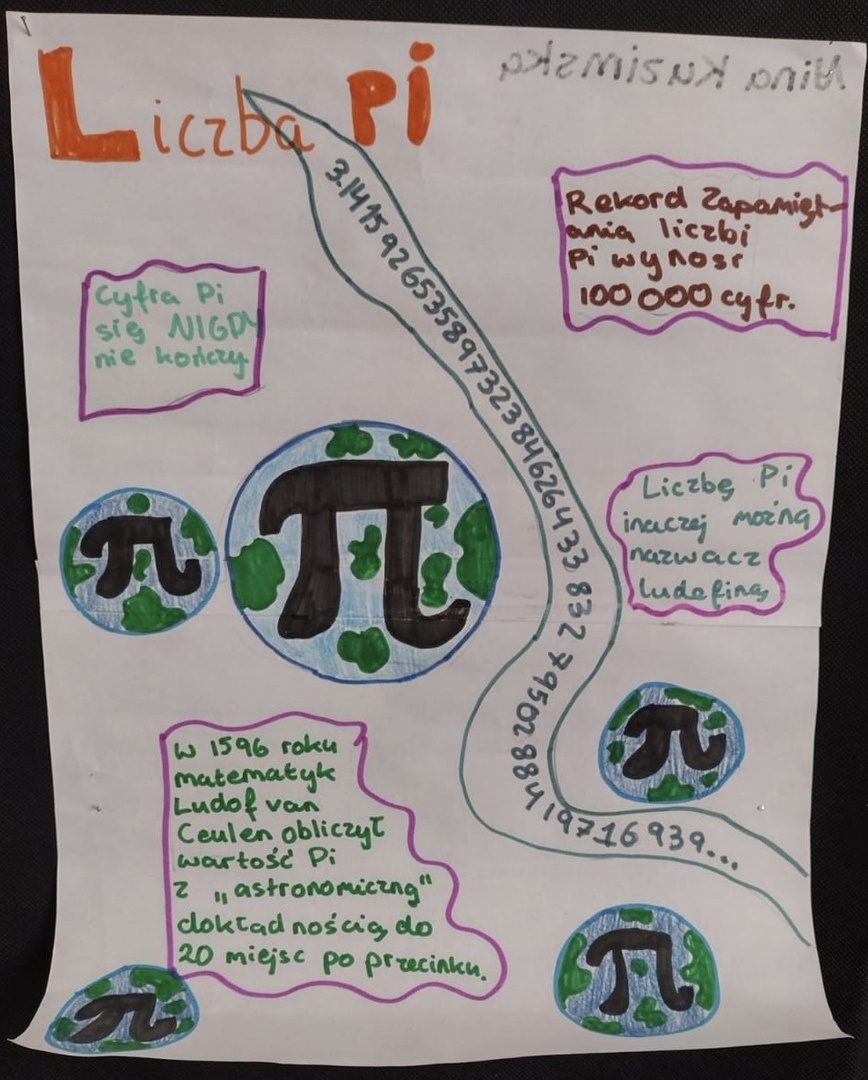 Liczba Pi
Nina Kuzimska
3.14159265358979323846264338327950288419716939...
Rekord Zapamięt-
ania liczbi
Pi wynosr
100 000 cyfr.
Cyfra Pi
się NIGDY
nie kończy
Liczbę Pi
inaczej można
nazwacz
ludofiną
W 1596 roku
matematyk
Ludof van
Ceulen obliczył
wartość Pi
z „astronomiczną"
dokładnością do
20 miejsc po przecinku.
π
π
π
π
π